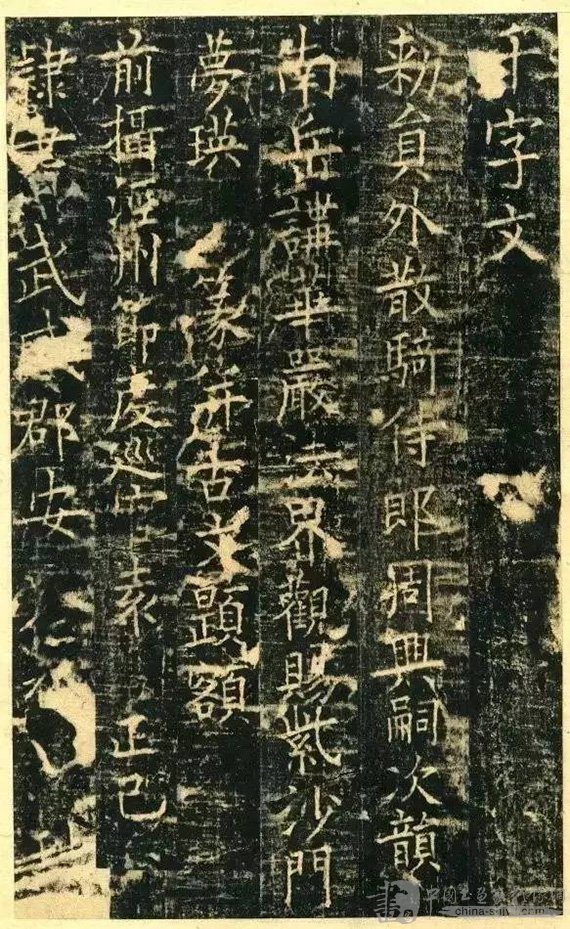 千字文
勑貟外散騎侍郎周興嗣次韻
南岳講華嚴法界觀賜紫沙門
夢瑛 篆并古文題額
前攝涇州節度巡官袁正己
隸書 武功郡安仁
china-s